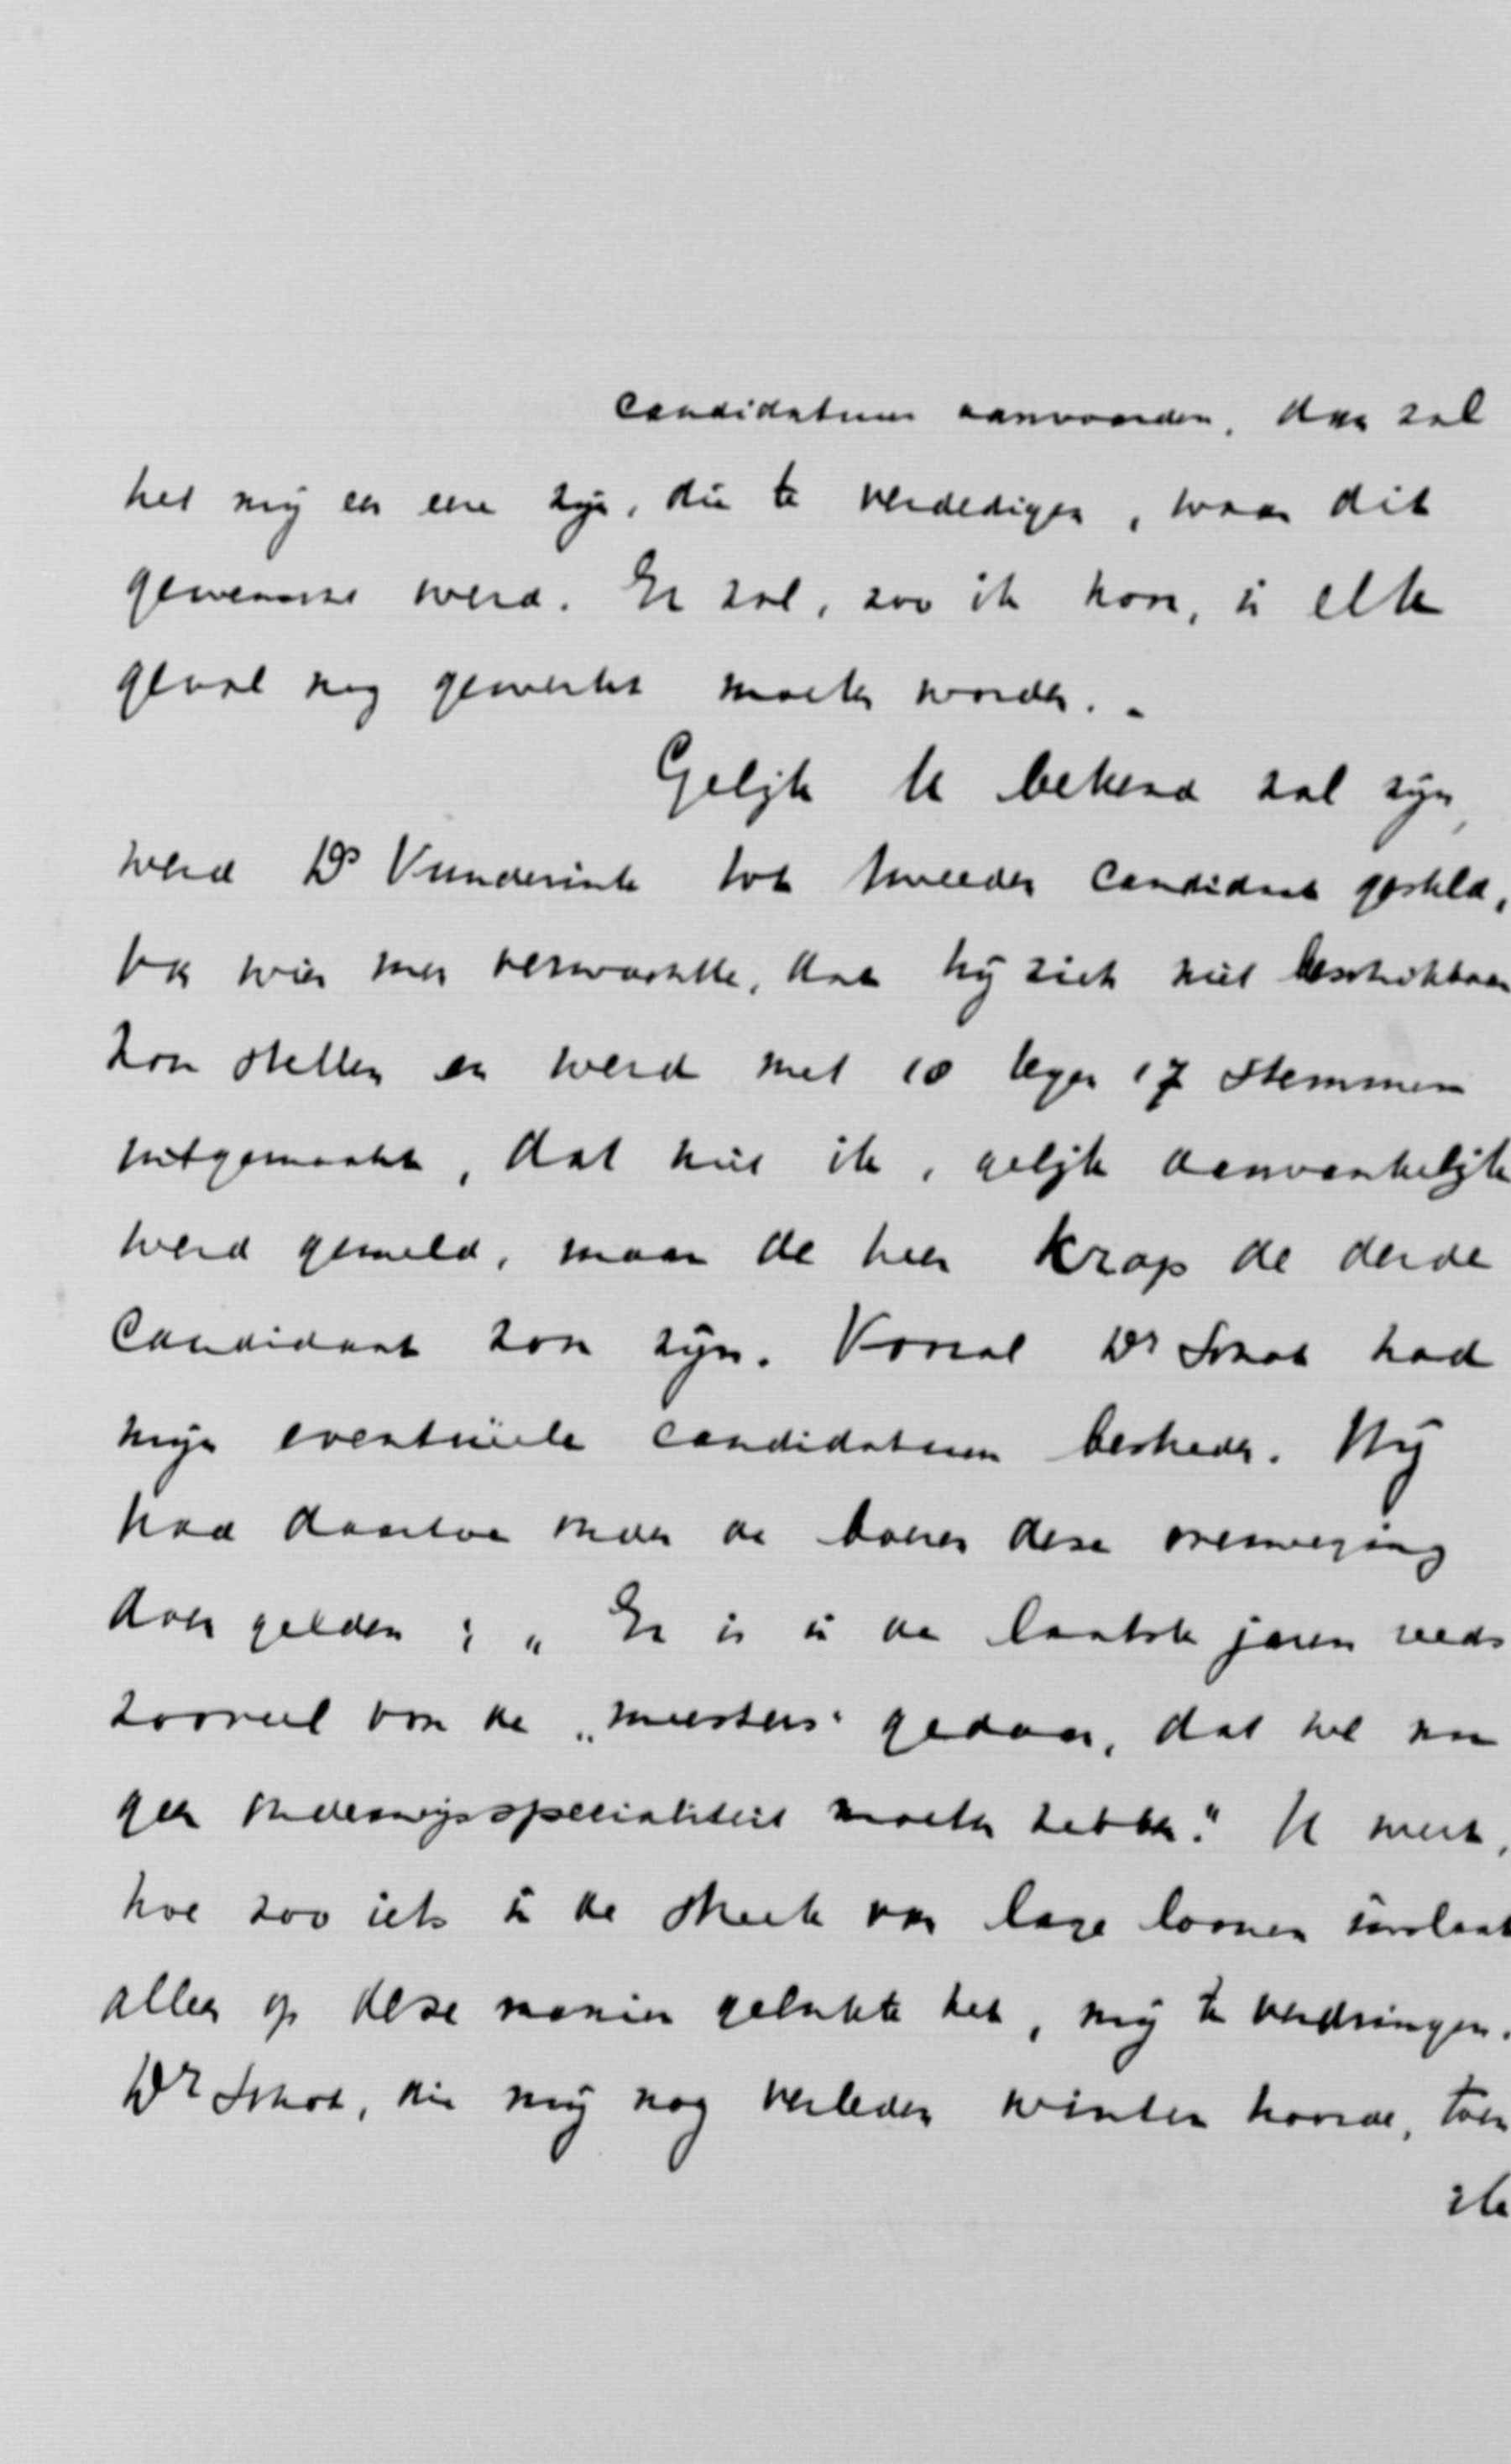 candidatuur aanvaarden, dan zal
het mij een eere zijn, die te verdedigen, waar dit
gewenscht werd. Er zal, zoo ik hoor, in elk
geval nog gewerkt moeten worden. -
Gelijk U bekend zal zijn,
werd Ds tot tweeden candidaat gesteld,
van wien men verwachtte, dat hij zich niet beschikbaar
zou stellen en werd met 10 tegen 17 stemmen
uitgemaakt, dat niet ik, gelijk aanvankelijk
werd gemeld, maar de heer Krap de derde
candidaat zou zijn. Vooral Dr Schot had
mijn eventueele candidatuur bestreden. Hij
had daartoe onder de boeren deze overweging
doen gelden: „Er is in de laatste jaren reeds
zooveel voor de „meesters" gedaan, dat we nu
geen onderwijsspecialiteit moeten hebben." U weet,
hoe zoo iets in de streek van lage loonen inslaat
alleen op deze manier gelukte het, mij te verdringen.
Dr Schot, die mij nog verleden winter hoorde, toen
ik